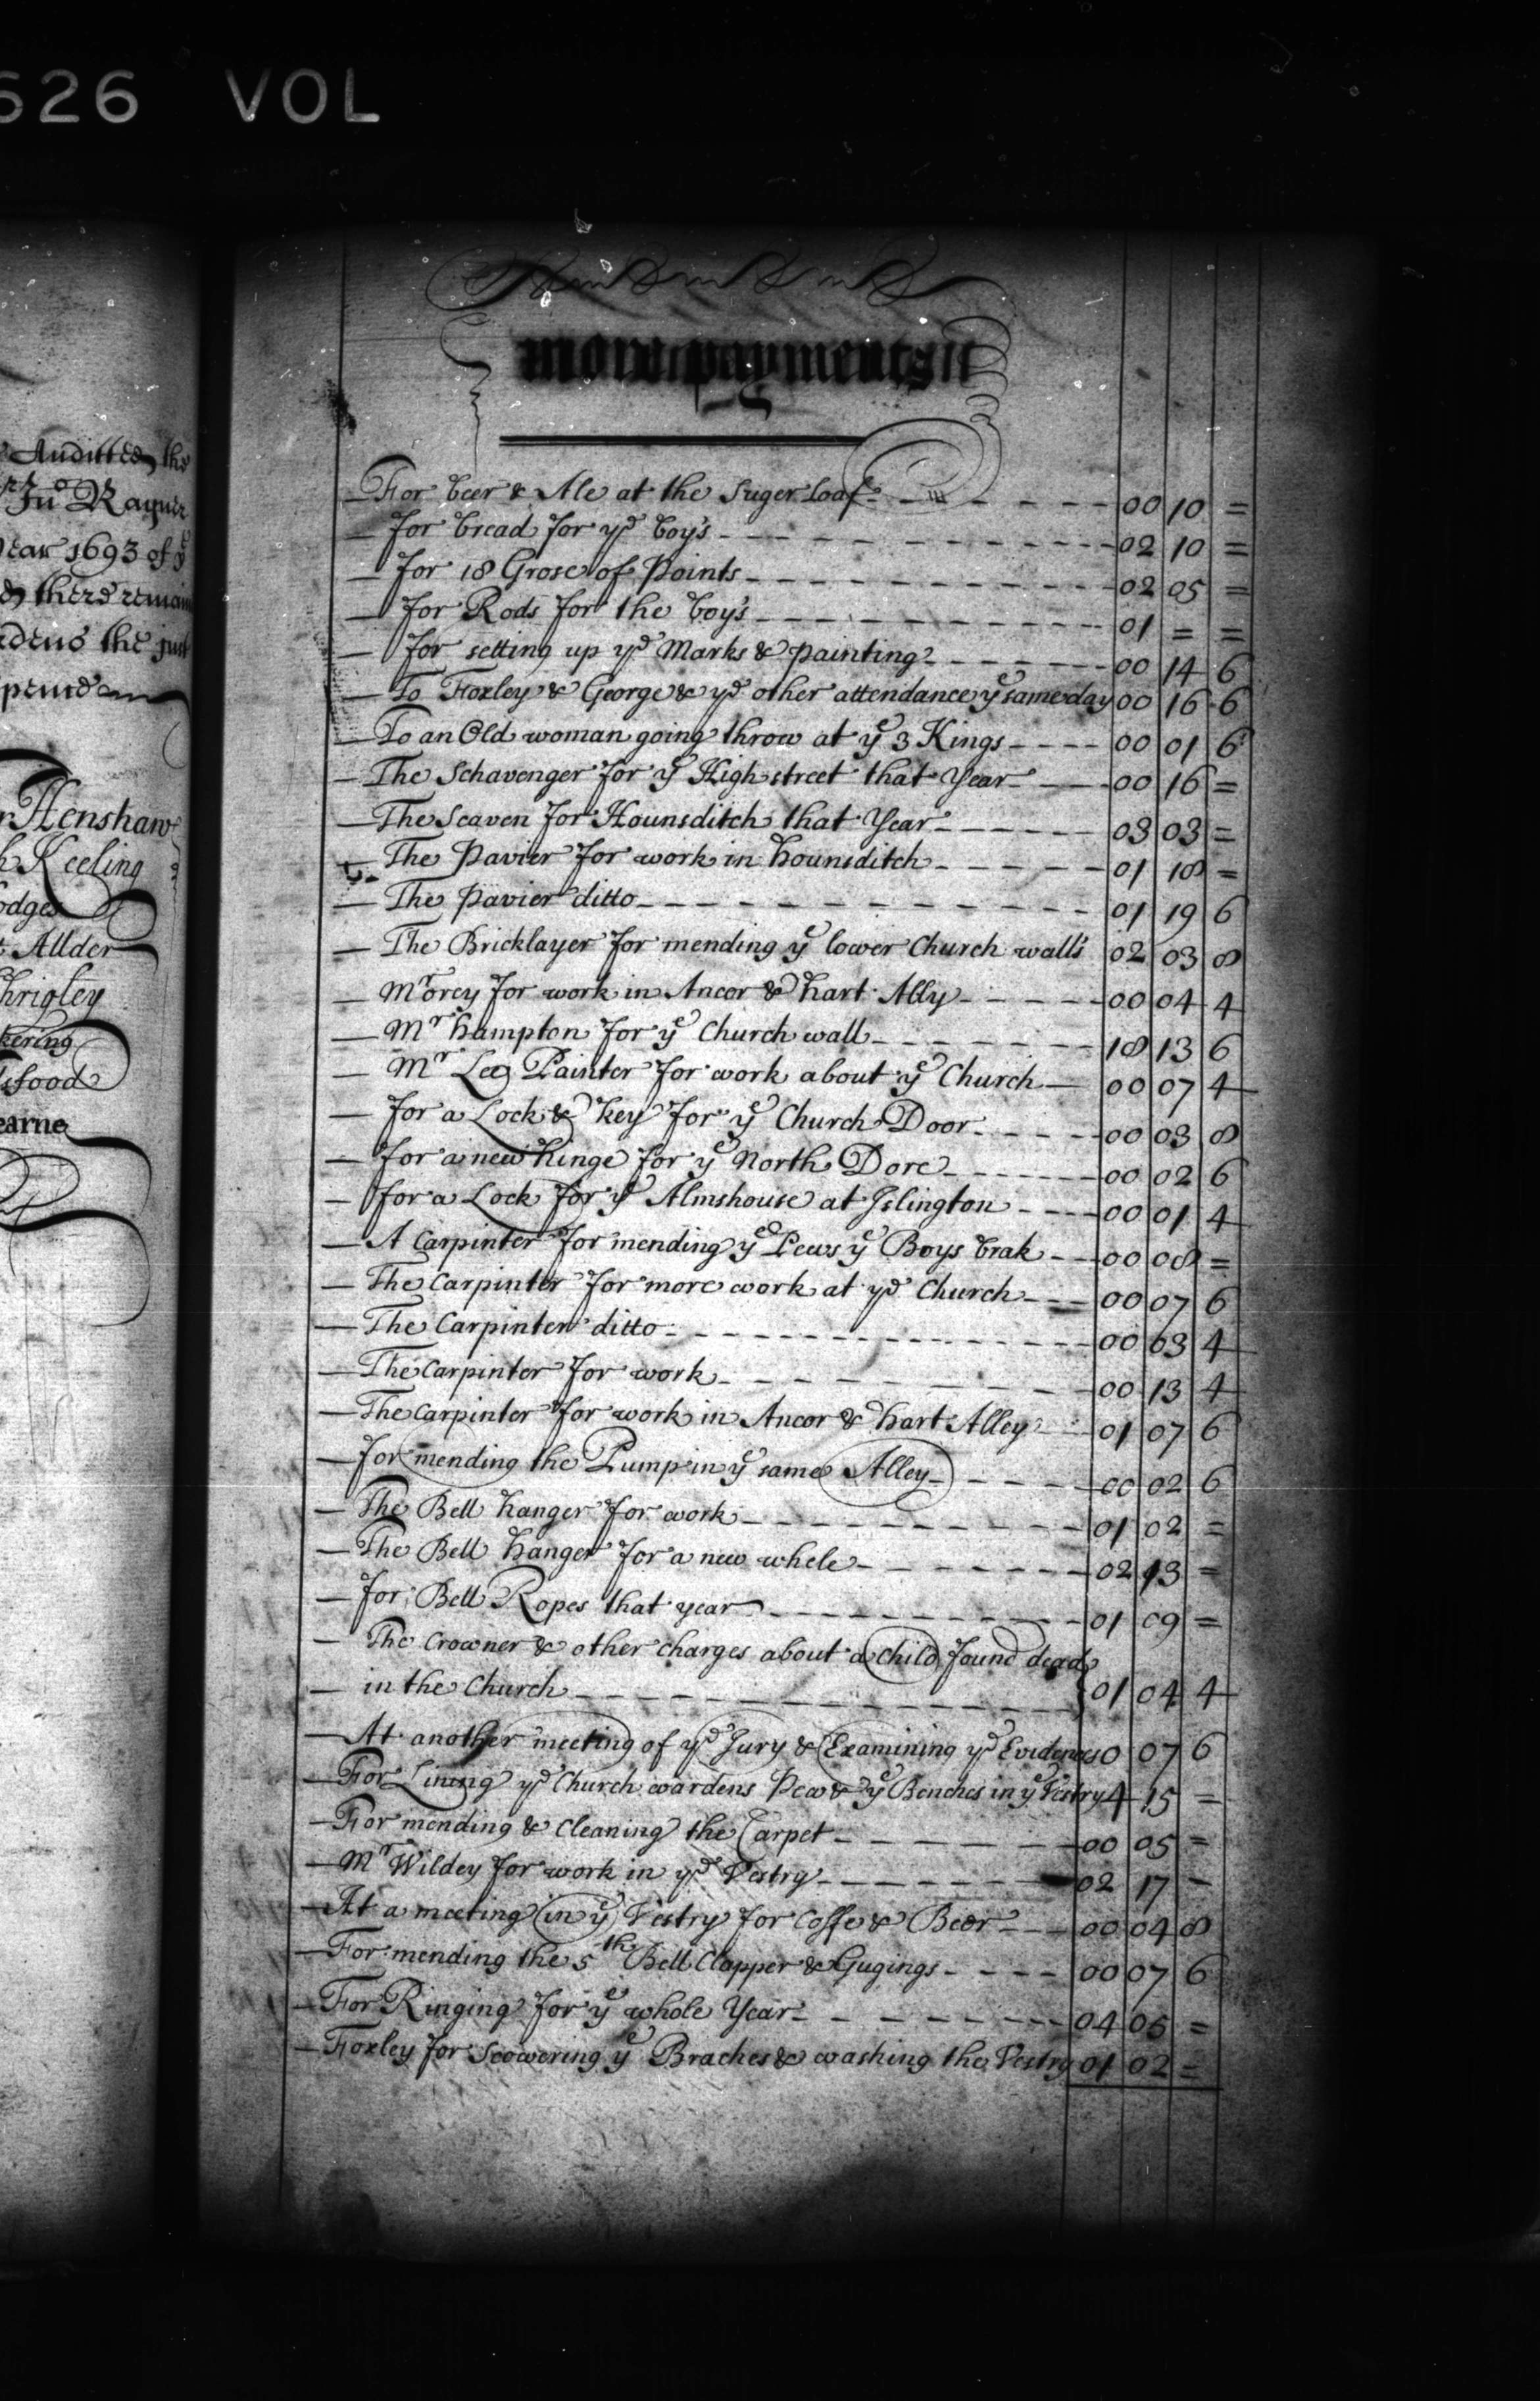 626 VOL
Auditted the
Jno Rayner
Year 1693 of ye
there remain
rdens the just
Henshaw
h Keeling
odges
t Allder
hrigley
kering
sfood
earne
more payments
For beer & Ale at the Suger Loaf 00 10 =
for bread for ye boy's 02 10 =
for 18 Grose of Points 02 05 =
for Rods for the boy's 01 = =
for setting up ye Marks & painting 00 14 6
To Foxley & George & ye other attendance ye same day 00 16 6
To an Old woman going throw at ye 3 Kings 00 01 6
The Schavenger for ye High street that Year 00 16 =
The Scaven for Hounsditch that Year 03 03 =
The Pavier for work in hounsditch 01 18 =
The Pavier ditto 01 19 6
The Bricklayer for mending ye lower Church walls 02 03 8
Mr orcy for work in Ancor & hart Ally 00 04 4
Mr hampton for ye Church wall 18 13 6
Mr Lee Painter for work about ye Church 00 07 4
for a Lock & key for ye Church Door 00 03 8
for a new hinge for ye North Dore 00 02 6
for a Lock for ye Almshouse at Islington 00 01 4
A Carpinter for mending ye Pews ye Boys brak 00 08 =
The Carpinter for more work at ye Church 00 07 6
The Carpinter ditto 00 03 4
The Carpinter for work 00 13 4
The Carpinter for work in Ancor & hart Alley 01 07 6
for mending the Pump in ye same Alley 00 02 6
The Bell hanger for work 01 02 =
The Bell hanger for a new whele 02 13 =
for Bell Ropes that year 01 09 =
The Crowner & other charges about a child found dead
in the Church 01 04 4
At another meeting of ye Jury & Examining ye Evidences 0 07 6
For Lining ye Church wardens Pew & ye Benches in ye Vestry 4 15 =
For mending & Cleaning the Carpet 00 05 =
Mr Wildey for work in ye Vestry 02 17 -
At a meeting in ye Vestry for Coffe & Beer 00 04 8
For mending the 5th Bell Clapper & Gugings 00 07 6
For Ringing for ye whole Year 04 05 =
Foxley for Scowering ye Braches & washing the Vestry 01 02 =